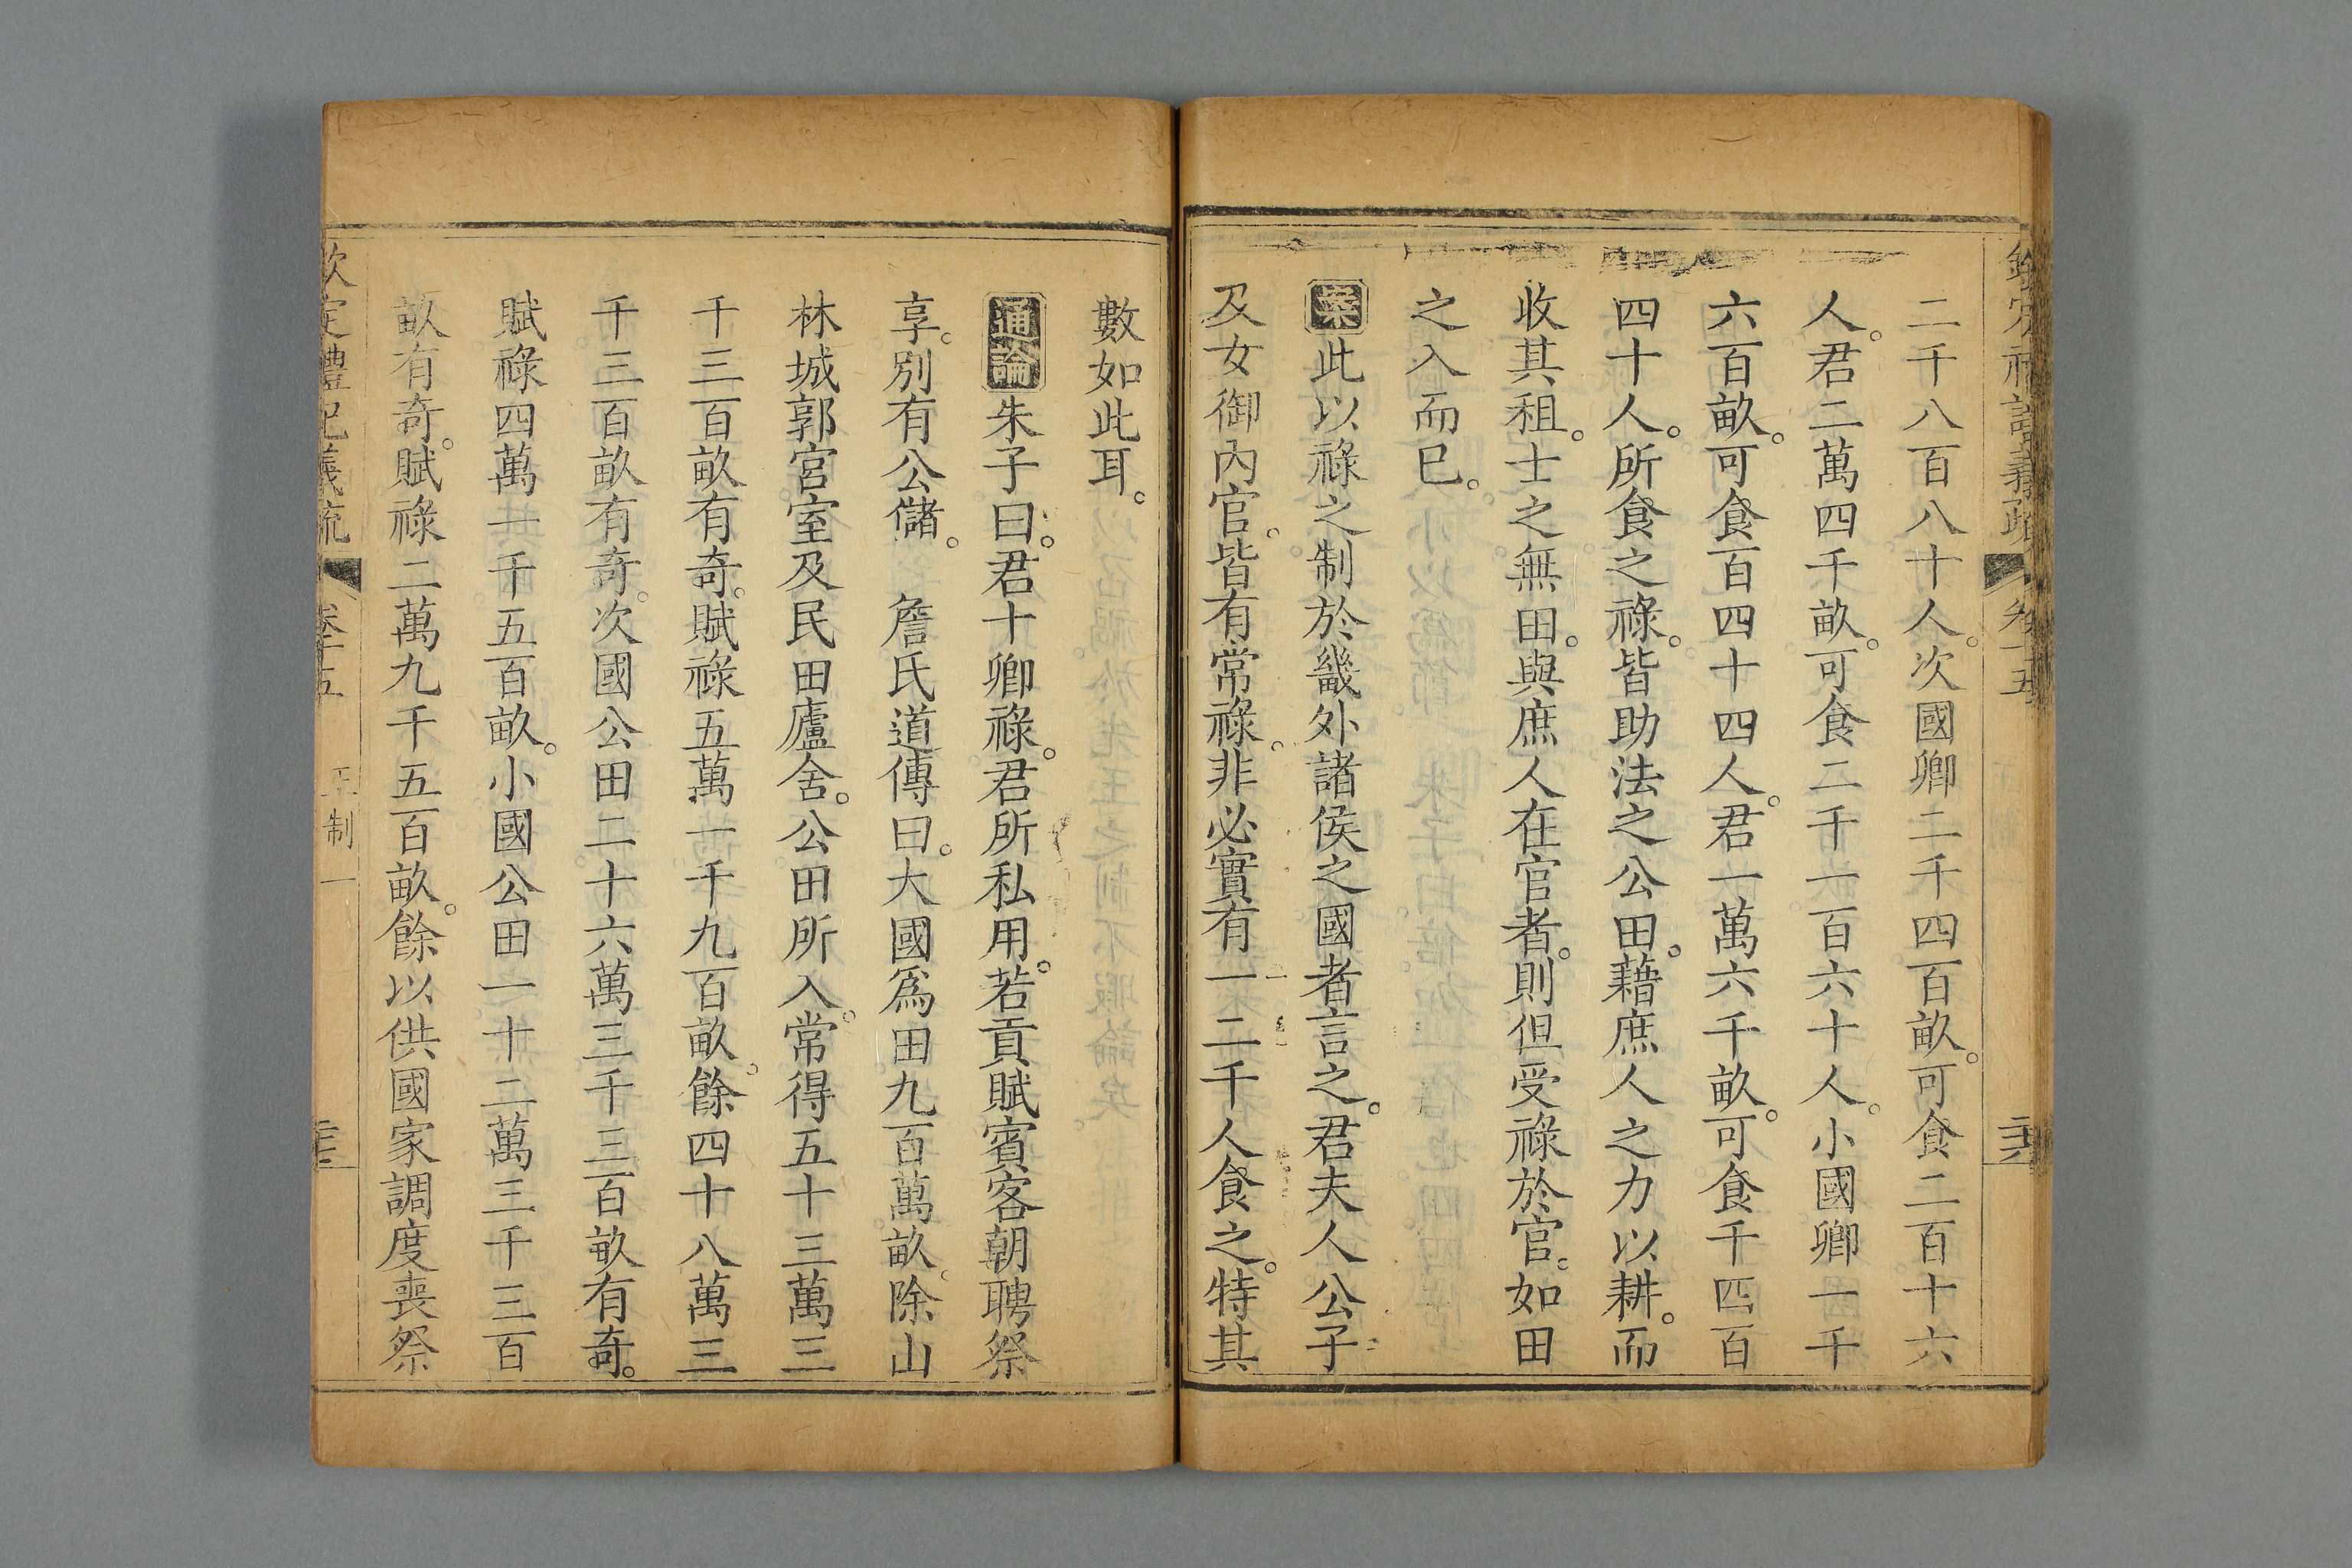 二千八百八十人。次國卿二千四百畝。可食二百十六
人。君二萬四千畝。可食二千一百六十人。小國卿一千
六百畝。可食百四十四人。君一萬六千畝。可食千四百
四十人。所食之祿。皆助法之公田。藉庶人之力以耕。而
收其租。士之無田。與庶人在官者。則但受祿於官。如田
之入而已。
案此以祿之制於畿外諸侯之國者言之。君夫人公子
及女御內官。皆有常祿。非必實有一二千人食之。特其
數如此耳。
通論朱子曰。君十卿祿。君所私用。若貢賦賓客朝聘祭
享。別有公儲。 詹氏道傳曰。大國爲田九百萬畝。除山
林城郭宮室及民田廬舍。公田所入。常得五十三萬三
千三百畝有奇。賦祿五萬一千九百畝。餘四十八萬三
千三百畝有奇。次國公田二十六萬三千三百畝有奇。
賦祿四萬一千五百畝。小國公田一十二萬三千三百
畝有奇。賦祿二萬九千五百畝。餘以供國家調度喪祭
欽定禮記義疏 卷十五 王制一